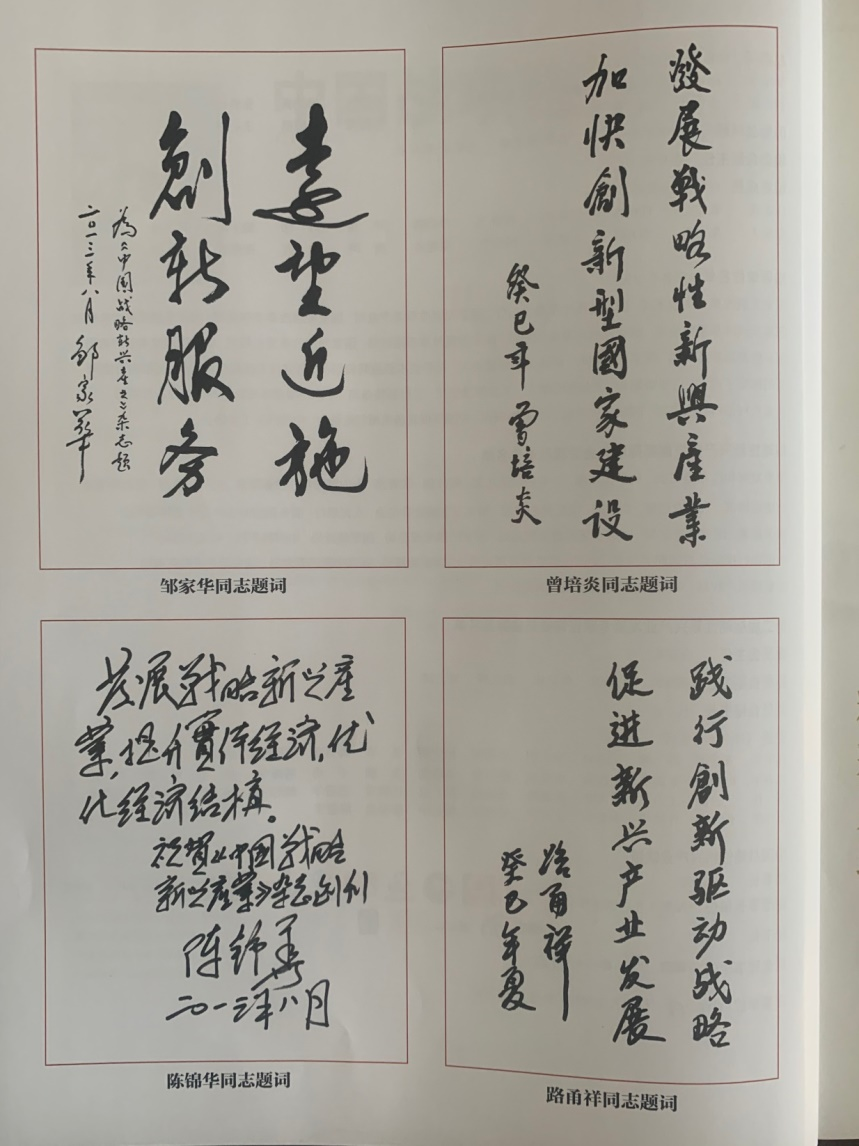 遠望近施
創新服務
为《中国战略新兴产业》杂志题
二〇一三年八月 邹家华
邹家华同志题词
發展戰略性新興產業
加快創新型國家建設
癸巳年 曾培炎
曾培炎同志题词
发展战略新兴產
業，提升實体经济，优
化经济结构。
祝贺《中国战略
新兴產業》杂志创刊
陈锦华
二〇一三年八月
陈锦华同志题词
践行創新驱动战略
促进新兴产业发展
路甬祥
癸巳年夏
路甬祥同志题词